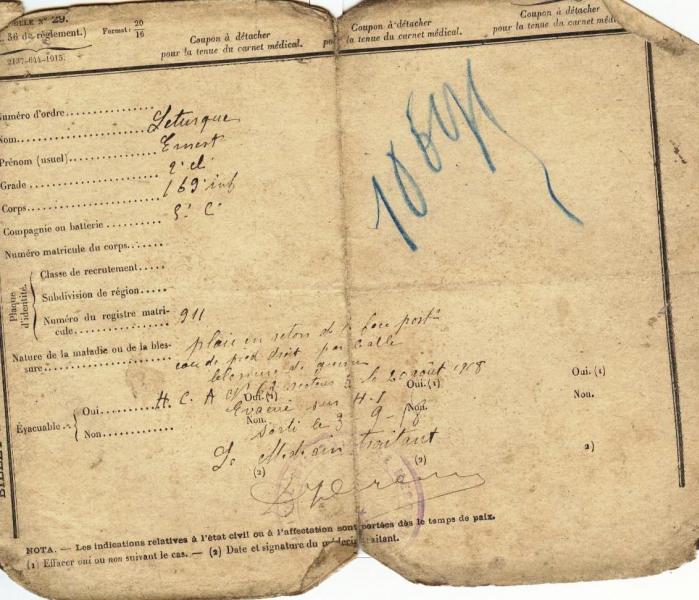 BILLE N° 29.
56 de règlement.)
Format: 20/16
2137-644-1915.
Coupon à détacher
pour la tenue du carnet médical.
Coupon à détacher
la tenue du carnet médical.
Coupon à détacher
pour la tenue du carnet médi
Numéro d'ordre
Nom Leturque
Prénom (usuel) Ernest
Grade 2e cl
Corps 169e inf
Compagnie ou batterie 5e C
Numéro matricule du corps
Plaque d'identité.
Classe de recrutement
Subdivision de région
Numéro du registre matri-
cule 911
Nature de la maladie ou de la bles-
sure plaie en seton de la face post
cou de pied droit par balle
blessure de guerre
H. C. A secteur le 20 août 1918
Évacuable
Oui
Oui. (1)
Oui. (1)
Oui. (1)
Evacué sur H.
Non
Non.
Non.
Non.
Sorti le 3 9
Le Medecin traitant
(2)
(2)
2)
NOTA. — Les indications relatives à l'état civil ou à l'affectation sont portées dès le temps de paix.
(1) Effacer oui ou non suivant le cas. — (2) Date et signature du médecin traitant.